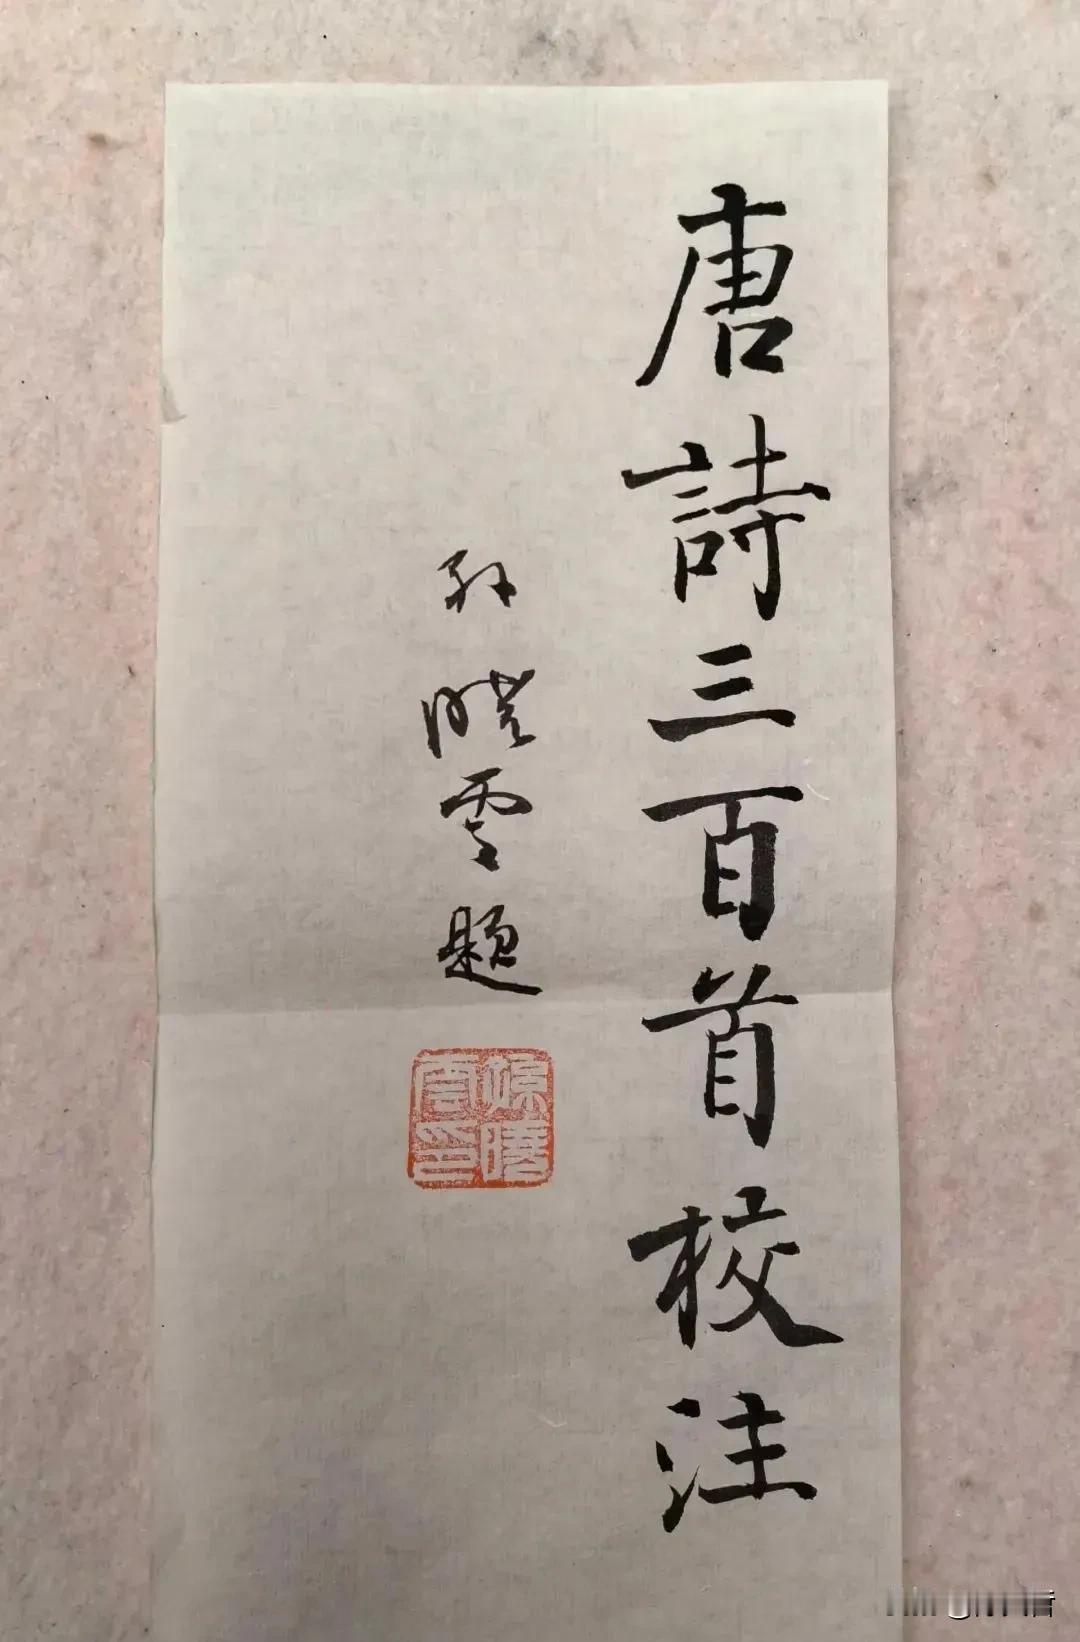 唐詩三百首校注
孙曉雲題
孫曉
雲印